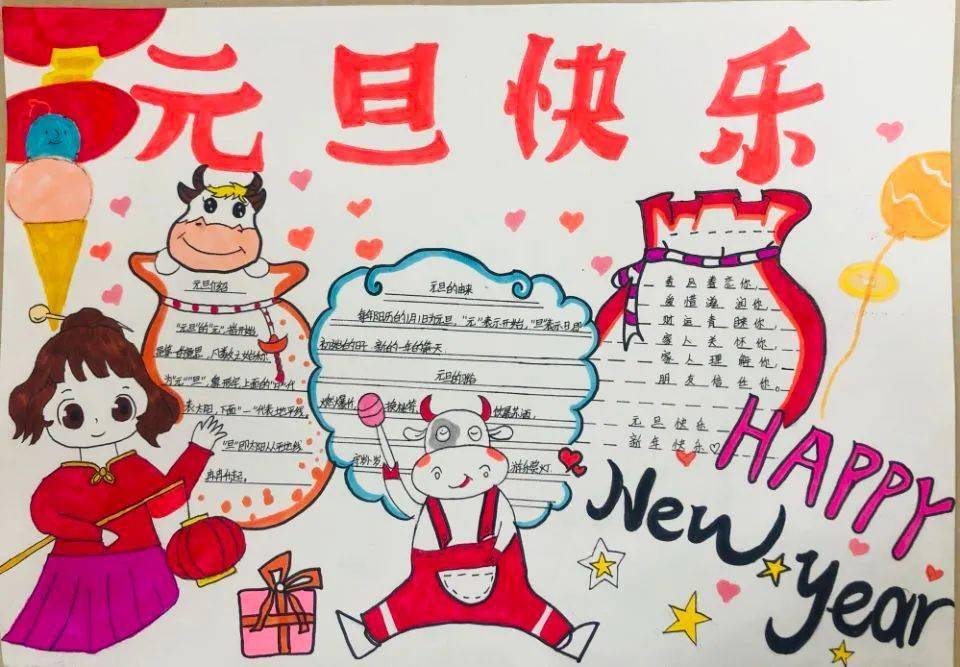 元旦快乐
元旦介绍
"元旦"的"元",指开始,
是第一的意思,凡数之始称为
为"元""旦",象形字,上面的"日"代
表太阳,下面"一"代表地平线。
"旦"即太阳从地平线
冉冉升起。
元旦的由来
每年阳历的1月1日为元旦,"元"表示开始,"旦"表示日
初 新的一年的第一天
元旦的
燃爆竹 换桃符 饮屠苏酒,
守卧 岁 游乐赏灯
喜鹊 恋你,
爱情滋润你,
财运青睐你,
家人关怀你,
家人理解你,
朋友信任你。
元旦快乐
新年快乐
HAPPY
New
year